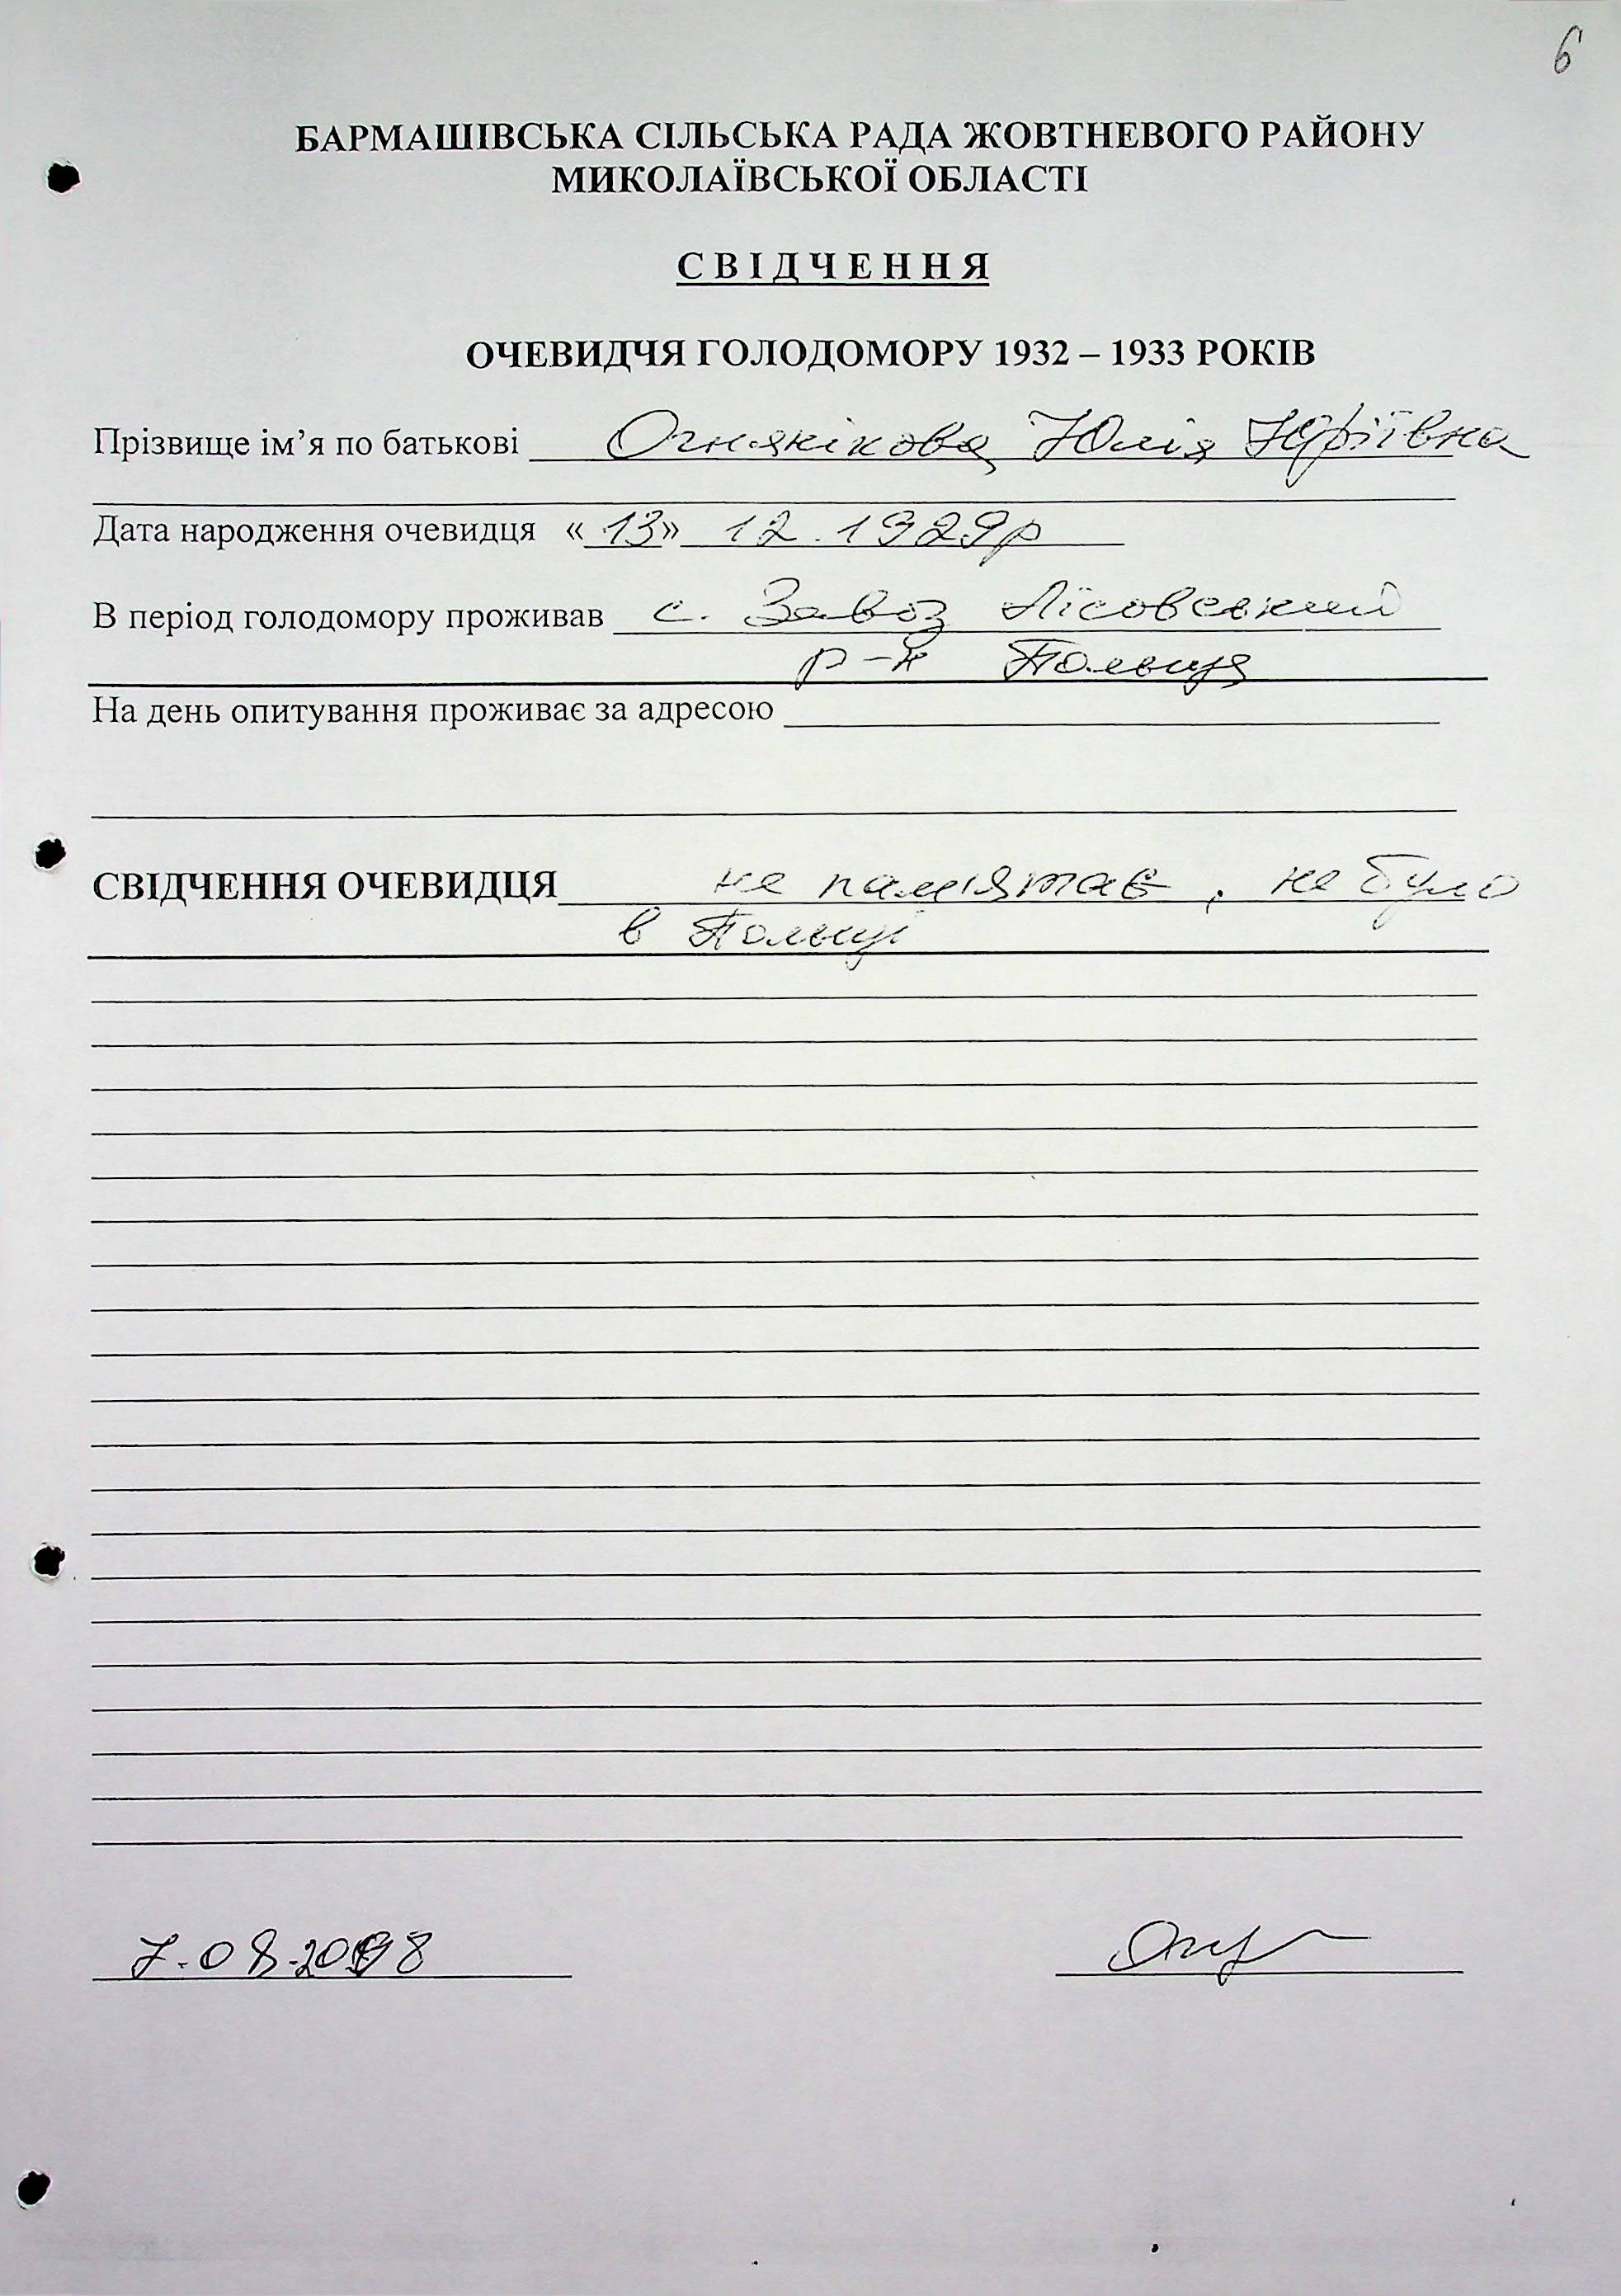 6
БАРМАШІВСЬКА СІЛЬСЬКА РАДА ЖОВТНЕВОГО РАЙОНУ
МИКОЛАЇВСЬКОЇ ОБЛАСТІ
СВІДЧЕННЯ
ОЧЕВИДЧЯ ГОЛОДОМОРУ 1932 – 1933 РОКІВ
Прізвище ім’я по батькові Огнянікова Юлія Юріївна
Дата народження очевидця «13» 12.1929р
В період голодомору проживав с. Завоз Лісовський
р-н Польща
На день опитування проживає за адресою
СВІДЧЕННЯ ОЧЕВИДЦЯ не памʼятає, не було
в Польщі
7.08.2008